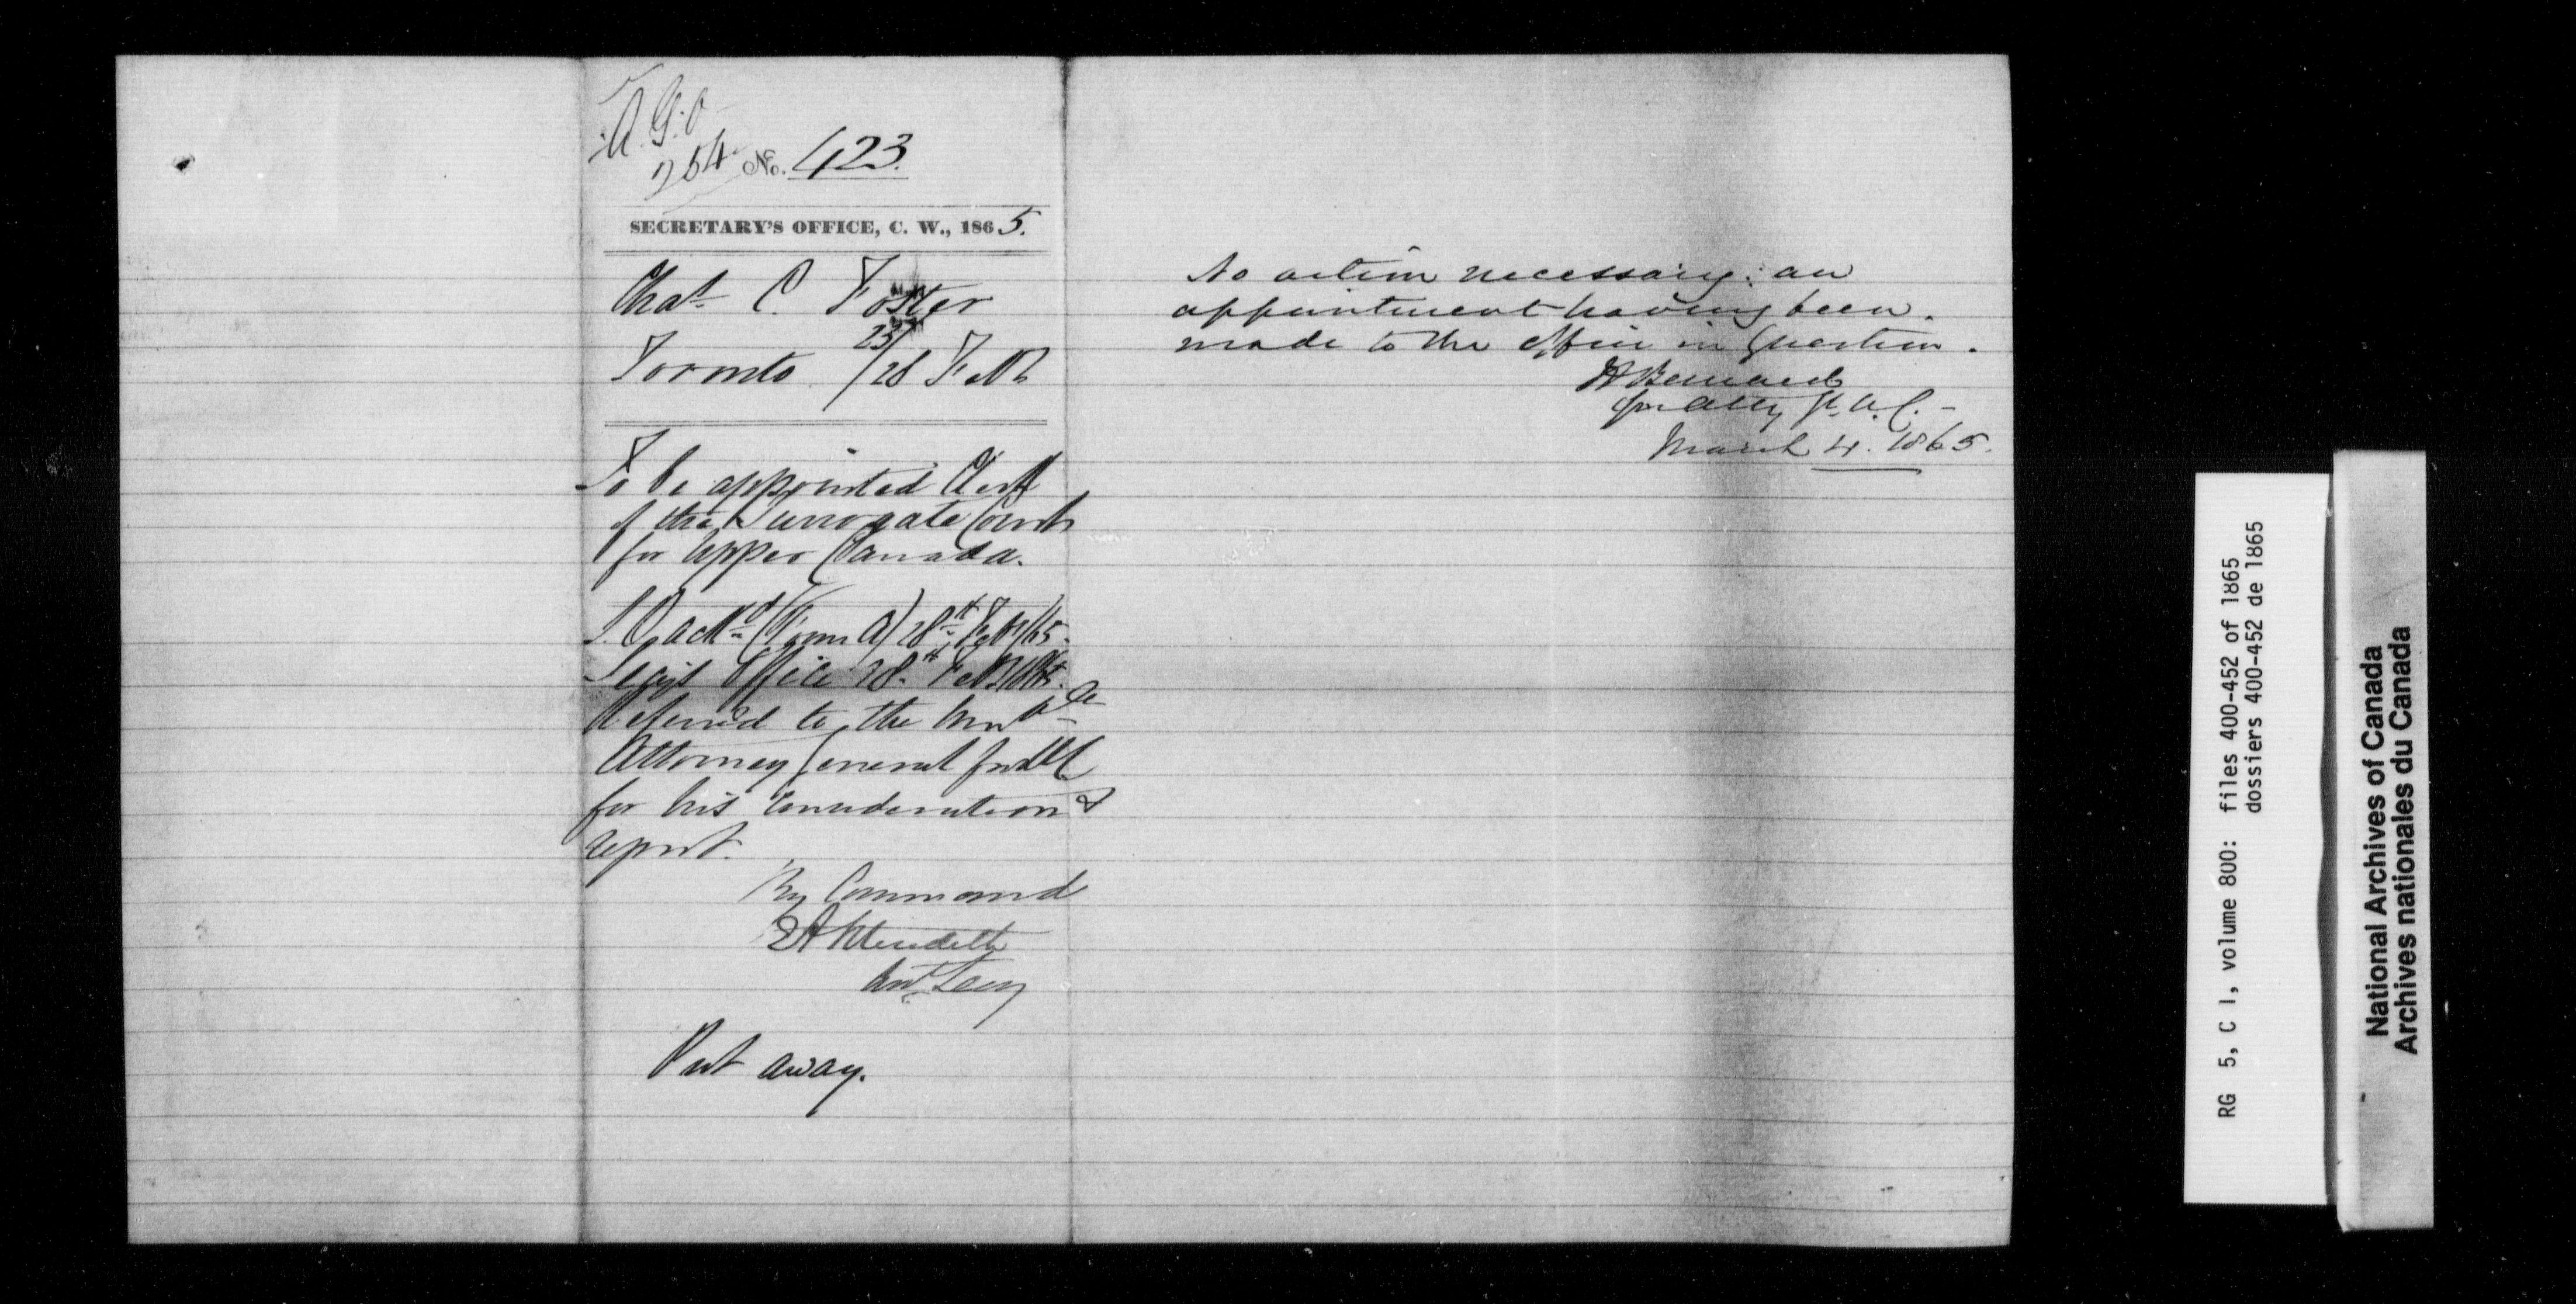 A.G.O
254 No. 423.
SECRETARY'S OFFICE, C. W., 1865.
Chas C. Foster
Toronto 23/28 Feb
To be appointed Clerk
of the Surrogate Court
for Upper Canada.
Ackd (Form A) 28th Feb/65.
Secy's Office 28th Feb 1865.
Referred to the Honble
Attorney General for U C
for his consideration &
report.
By Command
E A Meredith
Asst Secy
Put away.
No action necessary: an
appointment having been
made to the office in Question.
H Bernard
for Atty Gl. U.C. -
March 4. 1865.
RG 5, C 1, volume 800: files 400-452 of 1865
dossiers 400-452 de 1865
National Archives of Canada
Archives nationales du Canada